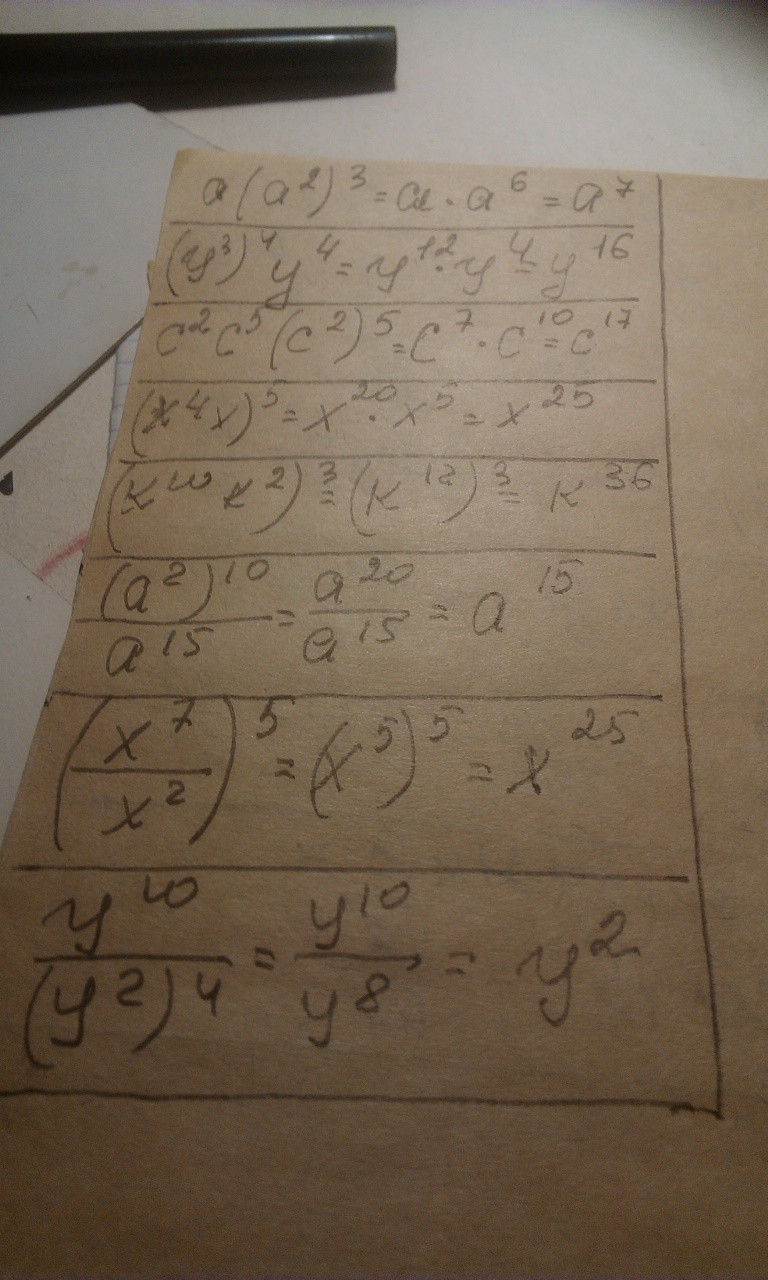 a(a²)³=a·a⁶=a⁷
(y³)⁴y⁴=y¹²·y⁴=y¹⁶
c²c⁵(c²)⁵=c⁷·c¹⁰=c¹⁷
(x⁴x)⁵=x²⁰·x⁵=x²⁵
(к¹⁰к²)³=(к¹²)³=к³⁶
(a²)¹⁰/a¹⁵=a²⁰/a¹⁵=a¹⁵
(x⁷/x²)⁵=(x⁵)⁵=x²⁵
y¹⁰/(y²)⁴=y¹⁰/y⁸=y²